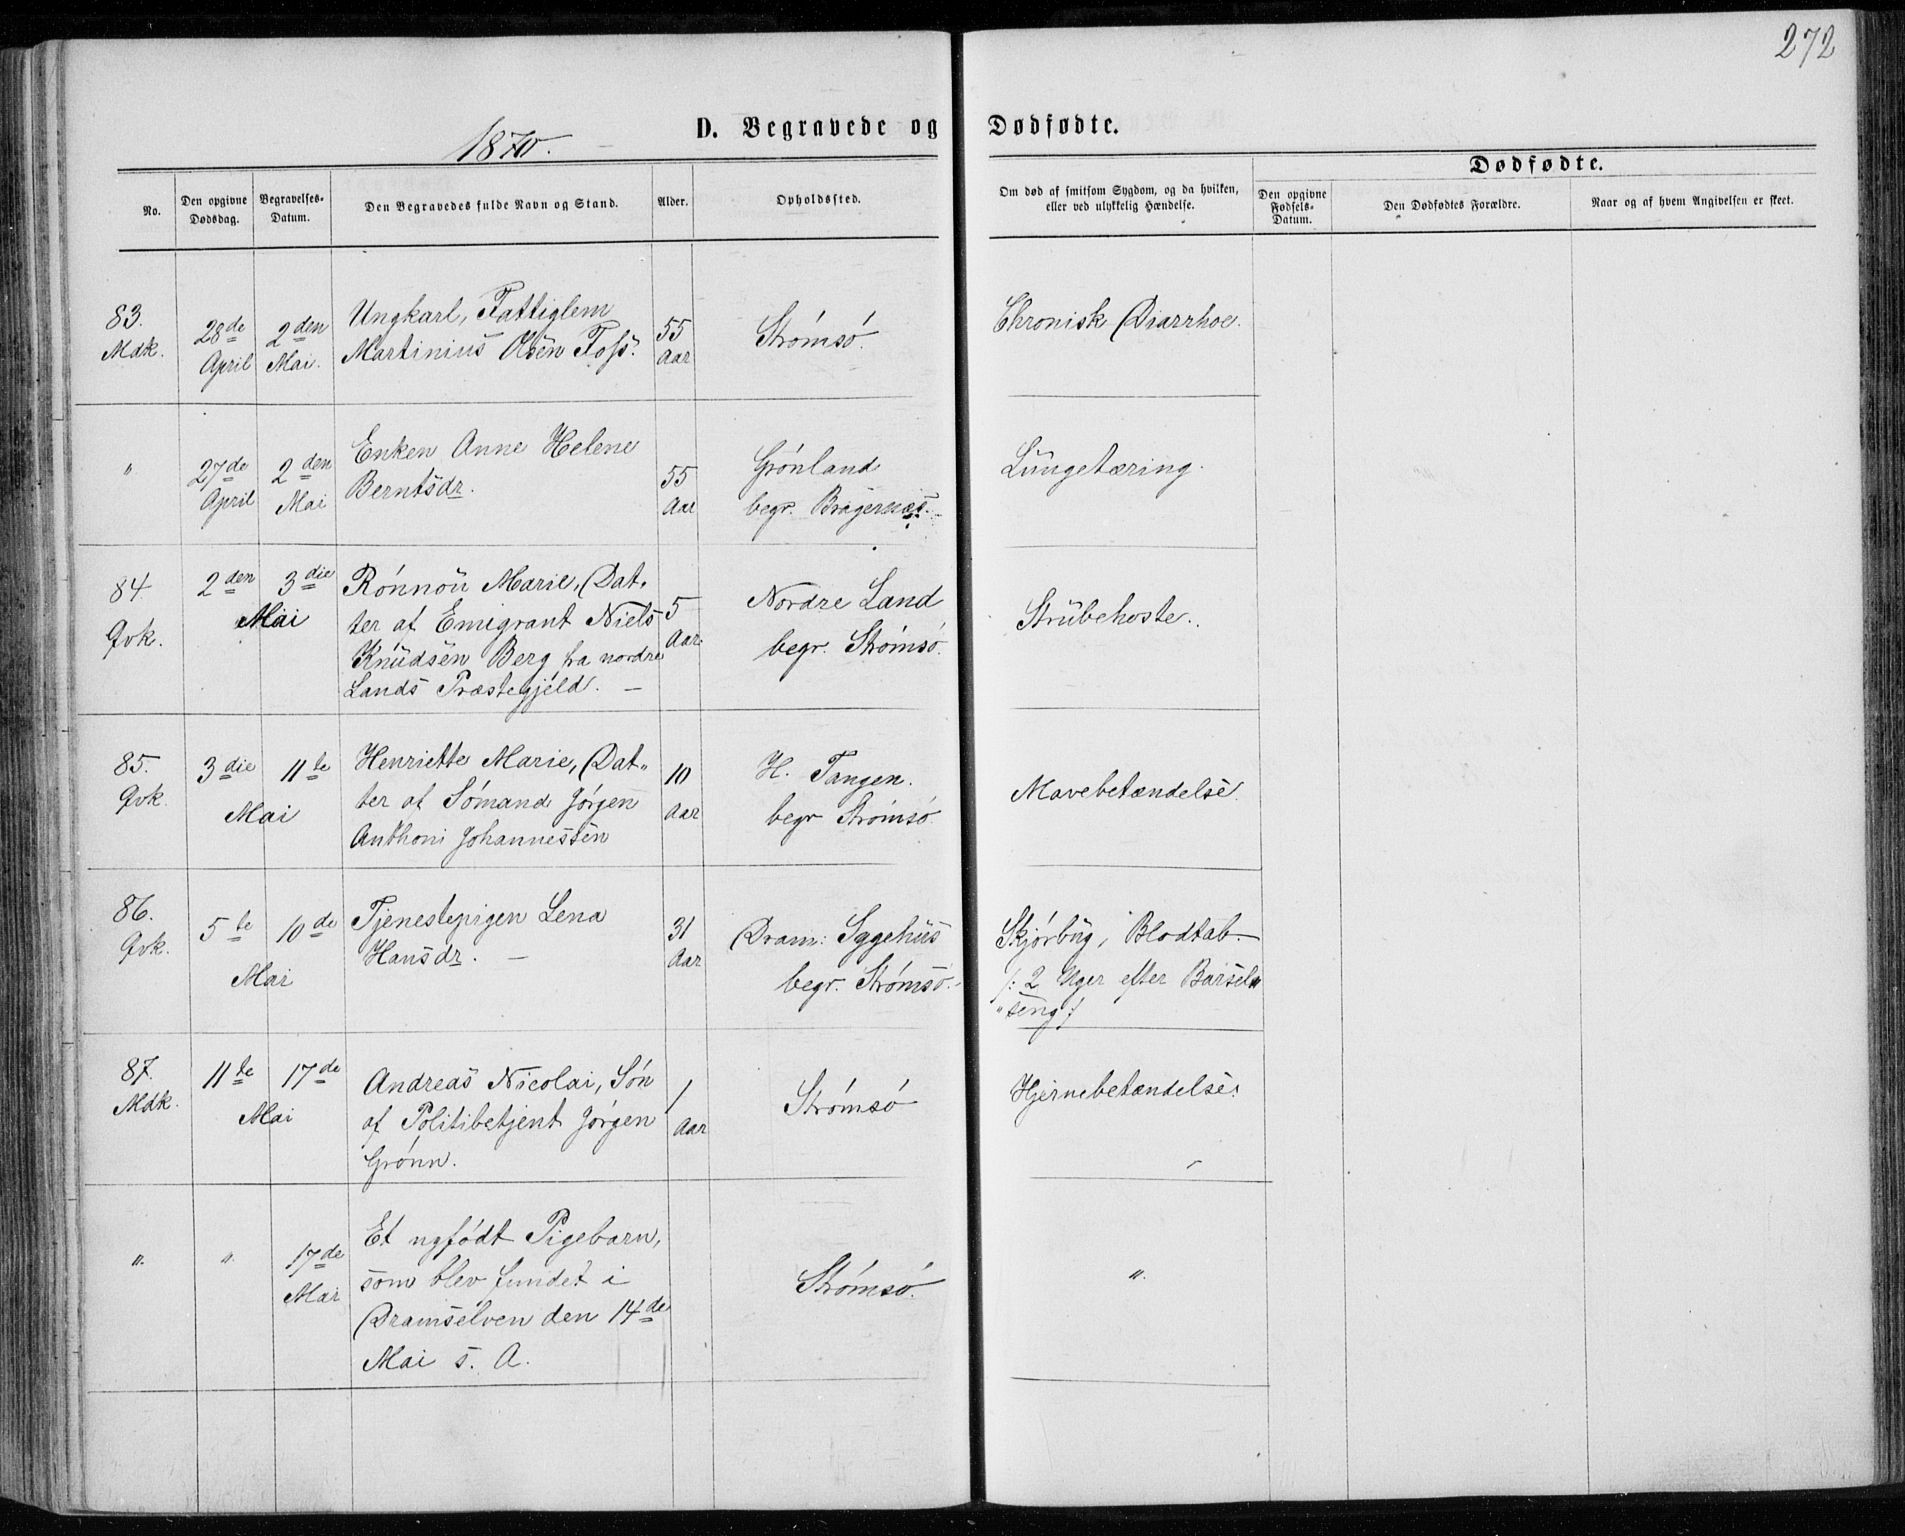 272
1870.
D. Begravede og Dødfødte.
Dødfødte.
No.
Den opgivne Dødsdag.
Begravelses-Datum.
Den Begravedes fulde Navn og Stand.
Alder.
Opholdssted.
Om død af smitsom Sygdom, og da hvilken,
eller ved ulykkelig Hændelse.
Den opgivne Fødsels-Datum.
Den Dødfødtes Forældre.
Naar og af hvem Angivelsen er skeet.
83.
Mdk.
28de
April
2den
Mai.
Ungkarl, Fattiglem
Martinius Olsen Foss.
55
Aar
Strømsø.
Chronisk Diarrhoe.
"
27de
April
2den
Mai
Enken Anne Helene
Berntsdr.
55
Aar
Grønland
begr. Bragernæs.
Lungetæring.
84.
Qvk.
2den 3die
Mai
Rønnou Marie, Dat-
ter af Emigrant Niels
Knudsen Berg fra nordre
Lands Præstegjeld. —
5
Aar.
Nordre Land
begr. Strømsø.
Strubehoste.
85.
Qvk.
3die 11te
Mai
Henriette Marie, Dat-
ter af Sømand Jørgen
Anthoni Johannessen
10
Aar
H. Tangen.
begr Strømsø.
Mavebetændelse.
86.
Qvk.
5te 10de
Mai
Tjenestepigen Lena
Hansdr. —
31
Aar
Dram: Sygehus
begr. Strømsø.
Skjørbug, Blodtab.
/: 2 Uger efter Barsel-
"seng :/
87.
Mdk.
11te 17de
Mai
Andreas Nicolai, Søn
af Politibetjent Jørgen
Grønn.
1
Aar
Strømsø
Hjernebetændelse.
"
"
17de
Mai
Et nyfødt Pigebarn,
som blev fundet i
Dramselven den 14de
Mai s. A.
Strømsø.
"